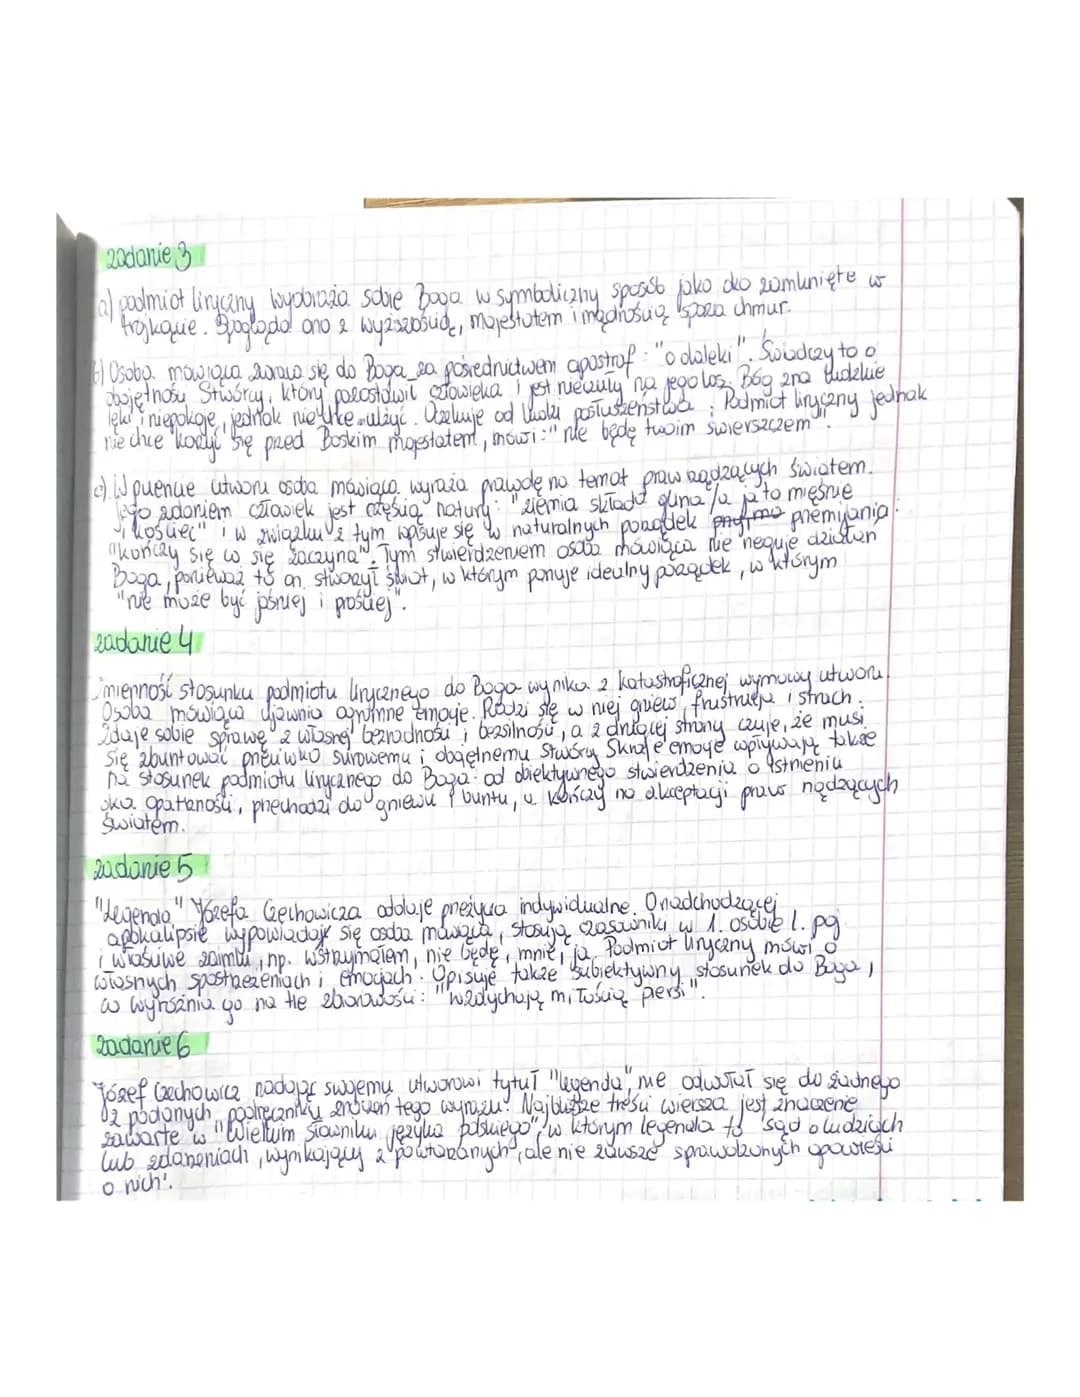 zadanie 3
a) podmiot liryczny wyobraża sobie Boga w symboliczny sposób jako oko zamknięte w
trójkącie. Spogląda ono z wyższością, majestatem i mądrością spoza chmur.
b) Osoba mówiąca zwraca się do Boga za pośrednictwem apostrof: "o daleki". Świadczy to o
obojętności Stwórcy, który pozostawił człowieka i jest nieczuły na jego los. Bóg zna ludzkie
lęki i niepokoje, jednak nie chce ulżyć. Oczekuje od ludzi posłuszeństwa. Podmiot liryczny jednak
nie chce korzyć się przed Boskim majestatem, mówi: "nie będę twoim świerszczem".
c) W puencie utworu osoba mówiąca wyraża prawdę na temat praw rządzących światem.
Jego zdaniem człowiek jest częścią natury: "ziemia składa glina/a ja to mięśnie
i kościec" i w związku z tym wpisuje się w naturalnych porządek przemijania:
"kończy się co się zaczyna". Tym stwierdzeniem osoba mówiąca nie neguje dzieła
Boga, ponieważ to on stworzył świat, w którym panuje idealny porządek, w którym
"nie może być jaśniej i prościej".
zadanie 4
Zmienność stosunku podmiotu lirycznego do Boga wynika z katastroficznej wymowy utworu.
Osoba mówiąca ujawnia ogromne emocje. Rodzi się w niej gniew, frustracja i strach.
Zdaje sobie sprawę z własnej bezradności i bezsilności, a z drugiej strony czuje, że musi
się zbuntować przeciwko surowemu i obojętnemu Stwórcy. Skrajne emocje wpływają także
na stosunek podmiotu lirycznego do Boga: od obiektywnego stwierdzenia o istnieniu
oka opatrzności, przechodzi do gniewu i buntu, a kończy na akceptacji praw rządzących
światem.
zadanie 5
"Legenda" Józefa Czechowicza oddaje przeżycia indywidualne. O nadchodzącej
apokalipsie wypowiadają się osoba mówiąca, stosują czasowniki w 1. osobie l. poj.
i właściwe zaimki, np. wstrzymałem, nie będę, mnie, ja. Podmiot liryczny mówi o
własnych spostrzeżeniach i emocjach. Opisuje także subiektywny stosunek do Boga,
co wyróżnia go na tle zbiorowości: "wzdychają miłością piersi".
zadanie 6
Józef Czechowicz nadając swojemu utworowi tytuł "legenda", nie odwołał się do żadnego
z podanych podręczniku znaczeń tego wyrazu. Najbliższe treści wiersza jest znaczenie
zawarte w "Wielkim słowniku języka polskiego", w którym legenda to "sąd o ludziach
lub zdarzeniach, wynikający z powtarzanych, ale nie zawsze sprawdzonych opowieści
o nich".